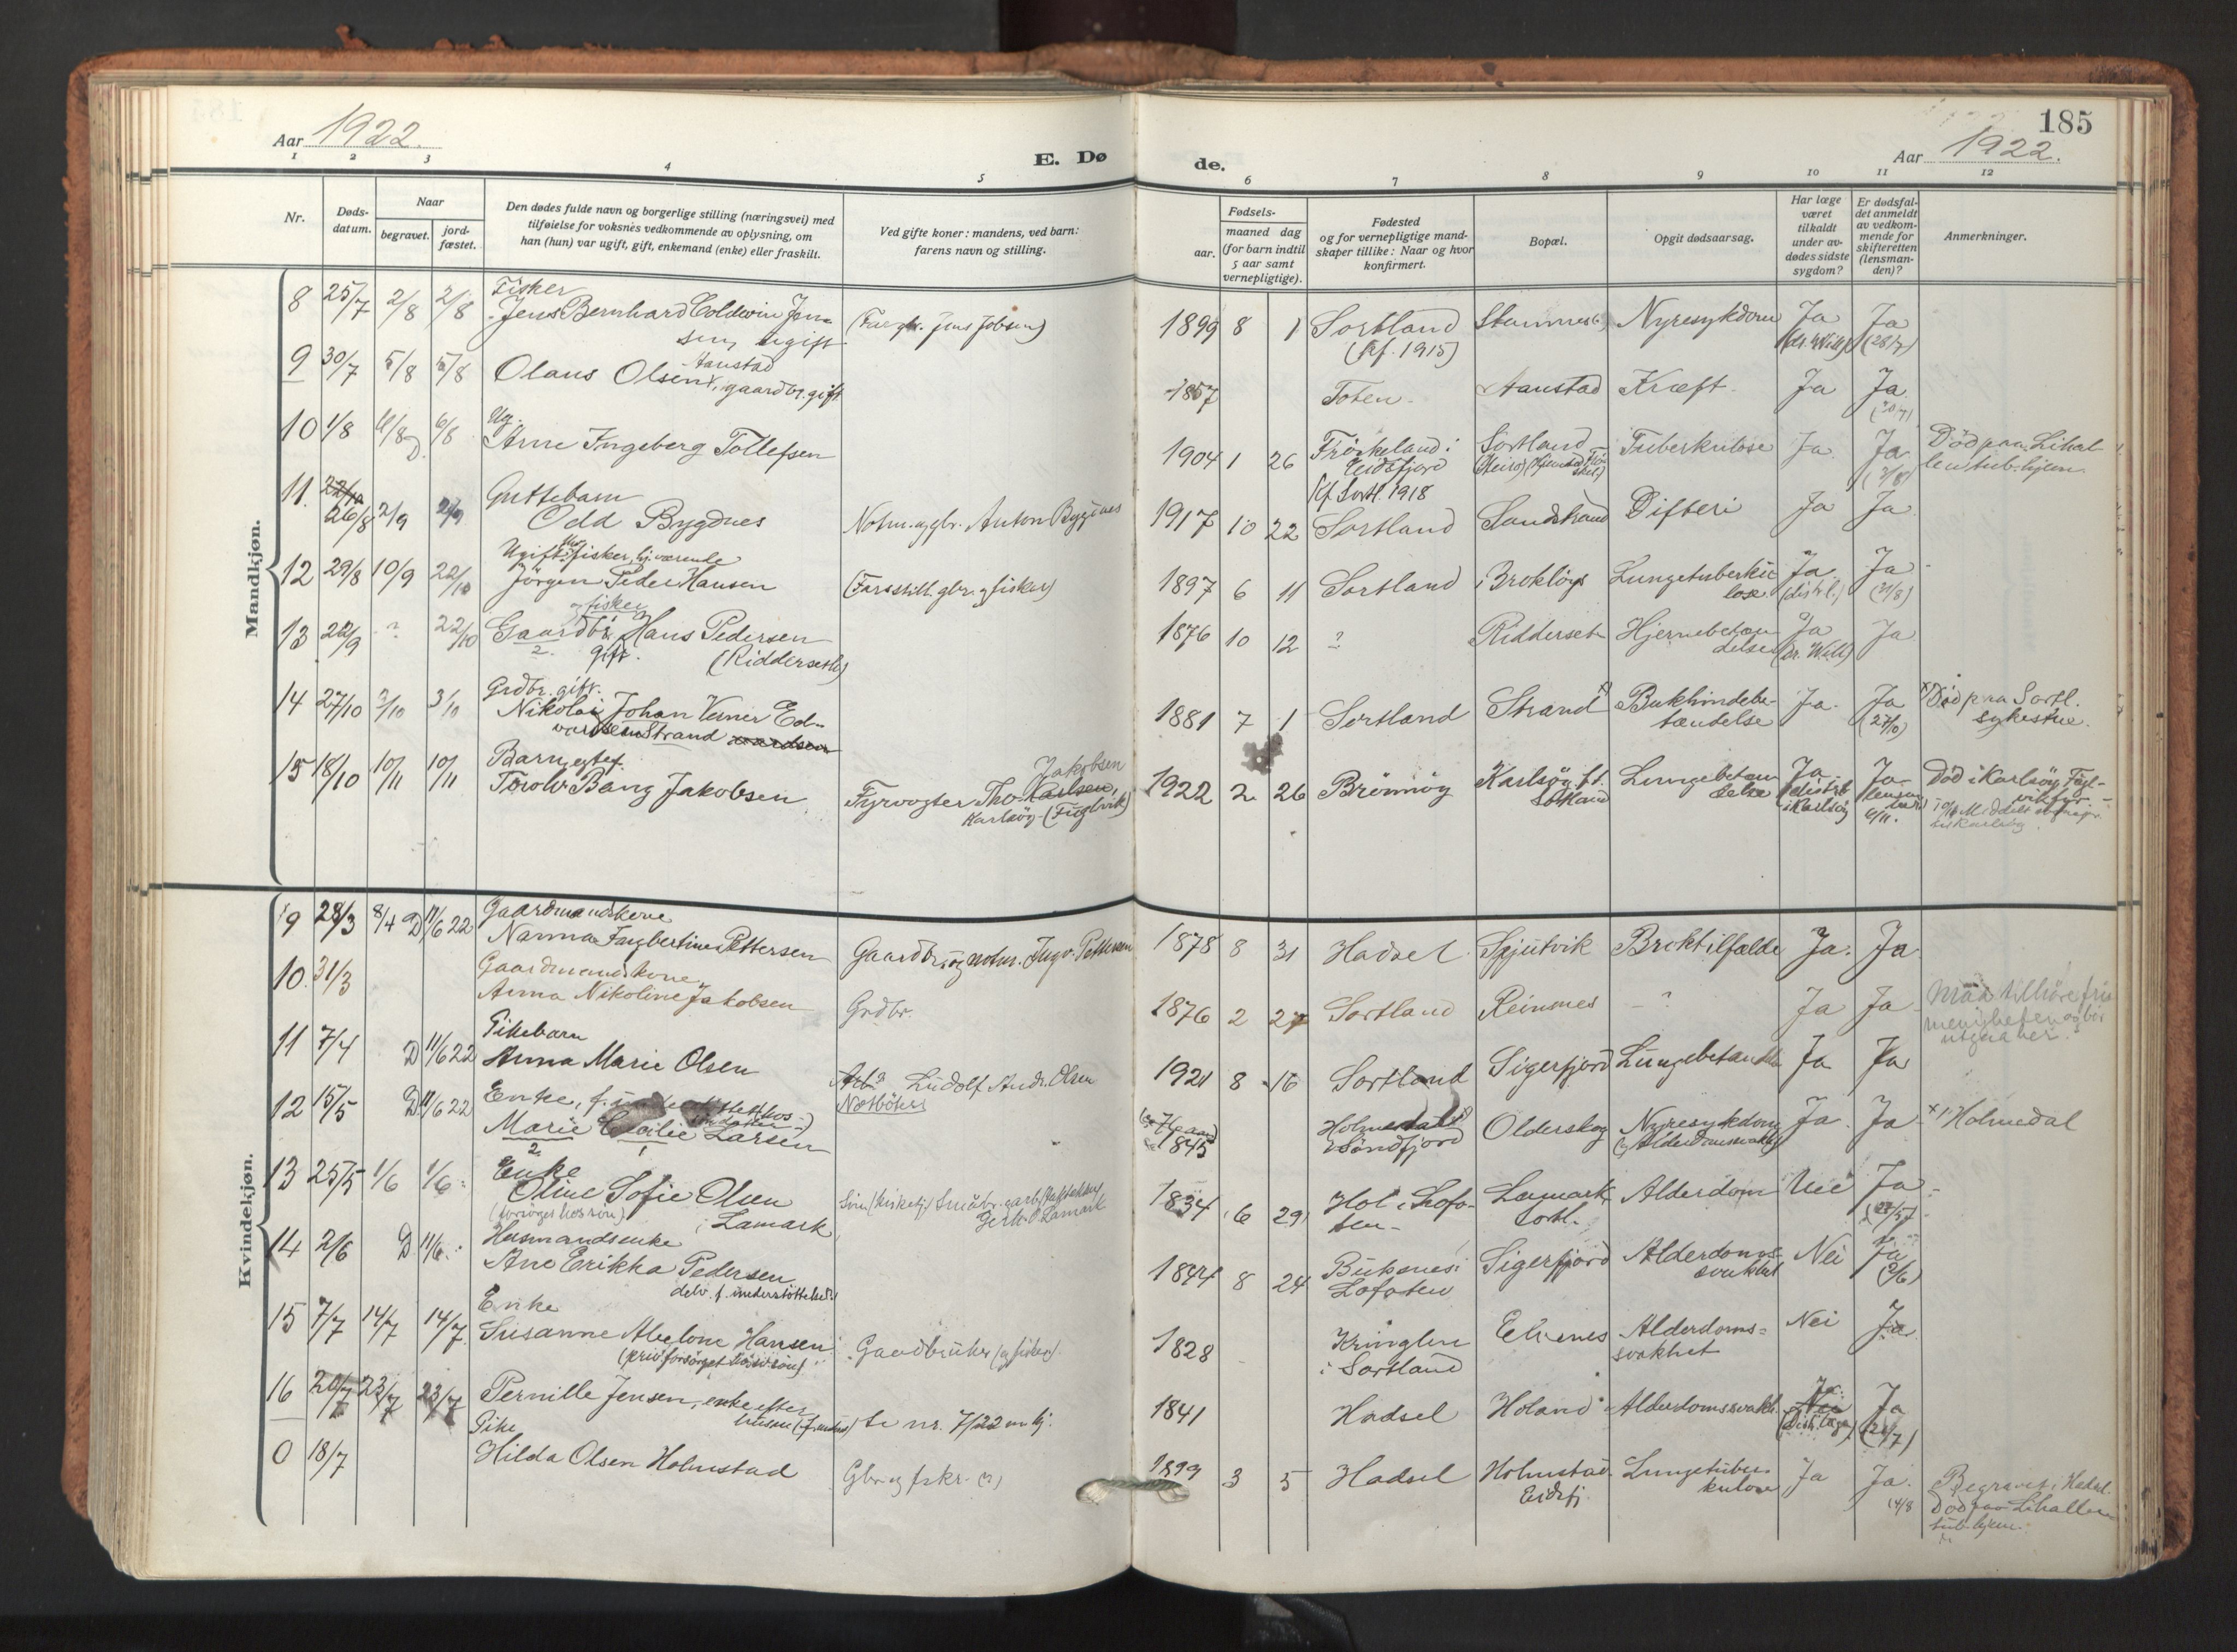 185
Aar 1922.
E. Dø
de.
Aar 1922.
1 2 3 4 5 6 7 8 9 10 11 12
Nr.
Døds-
datum.
Naar
begravet.
jord-
fæstet.
Den dødes fulde navn og borgerlige stilling (næringsvei) med
tilføielse for voksnes vedkommende av oplysning, om
han (hun) var ugift, gift, enkemand (enke) eller fraskilt.
Ved gifte koner: mandens, ved barn:
farens navn og stilling.
Fødsels-
aar.
maaned dag
(for barn indtil
5 aar samt
vernepligtige).
Fødested
og for vernepligtige mand-
skaper tillike: Naar og hvor
konfirmert.
Bopæl.
Opgit dødsaarsag.
Har læge
været
tilkaldt
under av-
dødes sidste
sygdom?
Er dødsfal-
det anmeldt
av vedkom-
mende for
skifteretten
(lensman-
den)?
Anmerkninger.
Mandkjøn.
Fisker
8 25/7 2/8 2/8 Jens Bernhard Coldevin Jen- 1899 8 1 Sortland Nyresykdom Ja Ja
sen, ugift (Kf. 1915)
Aanstad
9 30/7 5/8 5/8 Olaus Olsen, gaardbr. gift 1857 Toten Aanstad Kræft Ja Ja
Ug.
10 1/8 6/8 6/8 Arne Ingeberg Tollefsen 1904 1 26 Frøskeland i Sortland Tuberkulose Ja Ja Død paa Lihal-
D Eidsfjord (2/8) len tub. hjem
Kf. Sortl. 1918
11. Guttebarn
26/8 2/9 2/9 Odd Bygdnes Notm. og gbr. Anton Bygdnes 1917 10 22 Sortland Sandstrand Difteri Ja Ja
Ugift fisker, hj. værende
12 29/8 10/9 22/10 Jörgen Peder Hansen (Fars still. gbr. og fisker) 1897 6 11 Sortland Brokløys Lungetuberku- Ja Ja
lose (distr. l.) (31/8)
og fisker
13 22/9 ? 22/10 Gaardbr. Hans Pedersen 1876 10 12 ? Ridderseter Hjernebetæn- Ja Ja
2. gift. (Ridderseth) delse (dr. Well)
Grdbr. gift.
14 27/10 3/10 3/10 Nikolai Johan Verner Ed- 1881 7 1 Sortland Strand Bukhindebe- Ja Ja Død paa Sortl.
vardsen Strand tændelse (27/10) sykestue.
Barn, egtef.
15 18/10 10/11 10/11 Torolv Bang Jakobsen Fyrvogter Tho. Karlsen, Jakobsen 1922 2 26 Brönnöy Karlsöy f.t. Lungebetæn- Ja Ja Død i Karlsöy, Fugl-
Karlsöy (Fuglvik) Sortland delse i Karlsöy 6/11.
Kvindekjøn.
Gaardmandskone
9 28/3 8/4 D 11/6 22 Nanna Fagbertine Pettersen Gaardbr. og notm. Ingv. Pettersen 1878 8 31 Hadsel Spjutvik Broktilfælde Ja. Ja.
Gaardmandskone
10. 31/3 Anna Nikoline Jakobsen Grdbr. 1876 2 27 Sortland Reinsnes ? Ja Ja Maa tilhöre fri-
menigheten og bör
utgaa her?
Pikebarn
11 7/4 D 11/6 22 Anna Marie Olsen Arb. Ludolf Andr. Olsen 1921 8 16 Sortland Sigerfjord Lungebetændelse Ja Ja
Nætböter
Enke,
12 15/5 D 11/6 22 Marie Cecilie Larsen 1845 Holmedal i Söndfjord Olderskog Nyresykdom Ja. Ja x) Holmedal
2. 1 (Alderdomssvakh.)
Enke
13 25/5 1/6 1/6 Oline Sofie Olsen 1834 6 29 Hol i Lofo- Lamark Alderdom Nei Ja
(forsörges hos sön) i Lamark ten Sortl. (28/5)
Husmandsenke
14 2/6 D 11/6 Ane Erikka Pedersen 1844 8 24 Buksnes i Sigerfjord Alderdoms- Nei Ja
delv. f. understöttelse Lofoten svakhet (2/6)
Enke
15 7/7 14/7 14/7 Susanne Abelone Hansen Gaardbruker (og fisker) 1828 Kringlen Elvenes Alderdoms- Nei Ja
(priv. forsörget hos sön) i Sortland svakhet
16 20/7 23/7 23/7 Pernille Jensen, enke efter Se nr. 7/22 m. kj. 1841 Hadsel Holand Alderdomssvakh. Ja Ja
(Distr. læge) (21/7)
Pike
0 18/7 Hilda Olsen Holmstad Gbr. og fskr. (?) 1899 3 5 Hadsel Holmstad Lungetuber- Ja Ja. Begravet i Hadsel.
Eidsfj. kulose 14/8 Död paa Lihallen
tub. hjem.